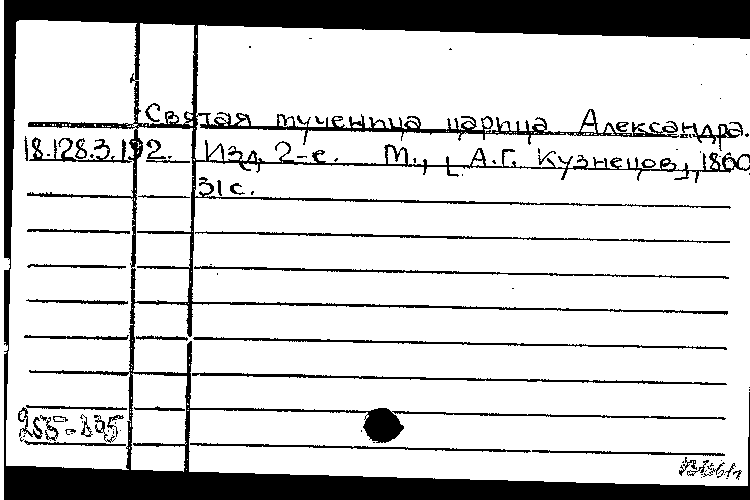 Святая мученица царица Александра.
18.128.3.192. Изд. 2-е. М., [А.Г. Кузнецов], 1860
31 с.
255-835